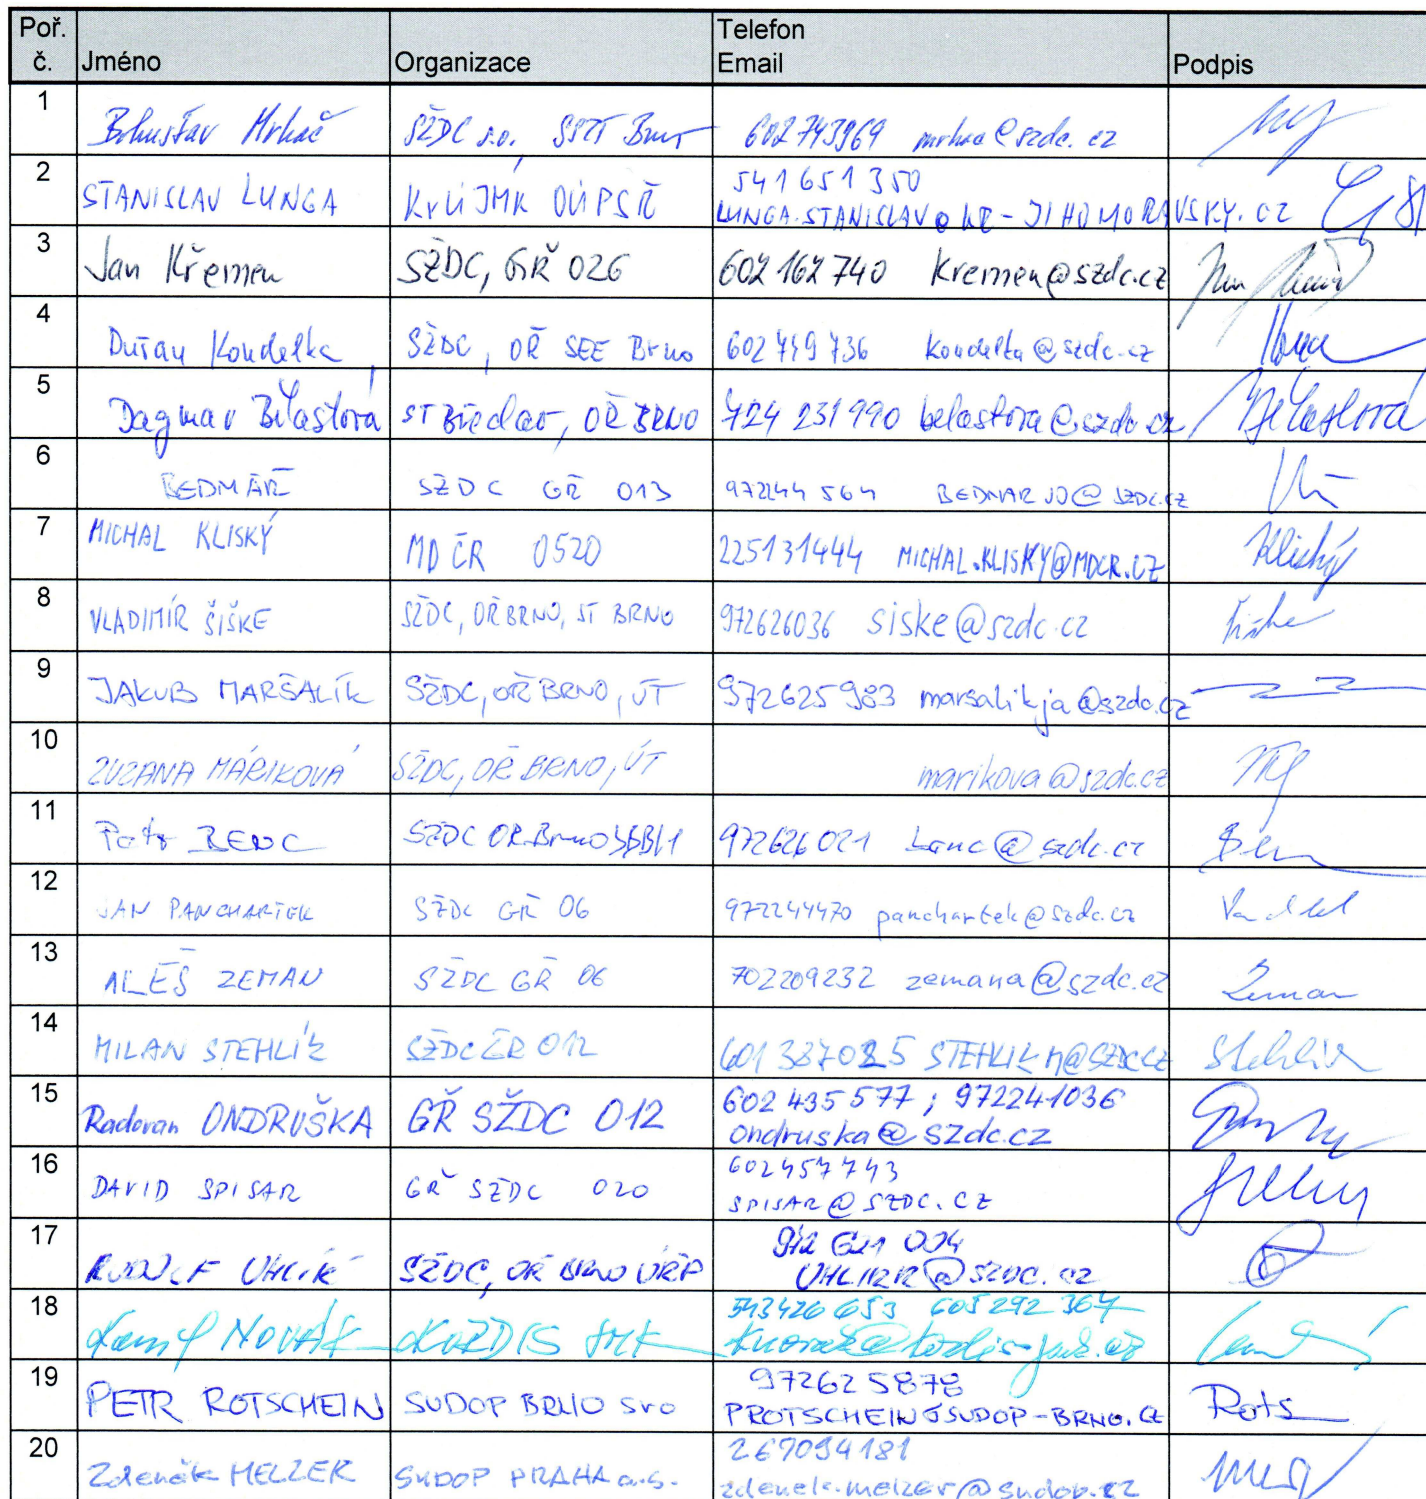 Poř. č. Jméno Organizace Telefon Email Podpis
1 Bohuslav Mrkáč SŽDC s.o. SSZT Brno 602743969 @szdc.cz
2 STANISLAV LUNGA KrÚ JMK OÚPSŘ 541651350
LUNGA.STANISLAV@KR-JIHOMORAVSKY.CZ
3 Jan Křemen SŽDC, GŘ 026 602 162 740 Kremen@szdc.cz
4 Dušan Koudelka SŽDC, OŘ SEE Brno 602 749 736 koudelka@szdc.cz
5 Dagmar Bělaštová ST Břeclav, OŘ BRNO 724 231 990 belastova@szdc.cz Bělaštová
6 BEDNÁŘ SŽDC GŘ 013 972244 564 BEDNARJO@SZDC.CZ
7 MICHAL KLISKÝ MD ČR 0520 225131444 MICHAL.KLISKY@MDCR.CZ Kliský
8 VLADIMÍR ŠIŠKE SŽDC, OŘ BRNO, ST BRNO 972626036 siske@szdc.cz Šiške
9 JAKUB MARŠALÍK SŽDC, OŘ BRNO, ÚT 972625983 marsalikja@szdc.cz
10 ZUZANA MÁRIKOVÁ SŽDC, OŘ BRNO, ÚT marikova@szdc.cz
11 Petr BENC SŽDC OŘ Brno 972626021 benc@szdc.cz
12 JAN PANCHARTEK SŽDC GŘ 06 972244470 panchartek@szdc.cz
13 ALEŠ ZEMAN SŽDC GŘ 06 702209232 zemana@szdc.cz Zeman
14 MILAN STEHLÍK SŽDC GŘ 012 601387025 STEHLIKM@SZDC.CZ Stehlík
15 Radovan ONDRUŠKA GŘ SŽDC 012 602 435 577 ; 972241036
ondruska@szdc.cz
16 DAVID SPISAR GŘ SŽDC 020 602457743
SPISAR@SZDC.CZ
17 RUDOLF UHLÍŘ SŽDC, OŘ BRNO ÚŘP 972 621 004
UHLIRR@SZDC.CZ
18 Kamil NOVÁK KORDIS JMK 543426653 605292364
knovak@kordis-jmk.cz
19 PETR ROTSCHEIN SUDOP BRNO sro 972625878
PROTSCHEIN@SUDOP-BRNO.CZ Rots
20 Zdeněk MELZER SUDOP PRAHA a.s. 267094181
zdenek.melzer@sudop.cz